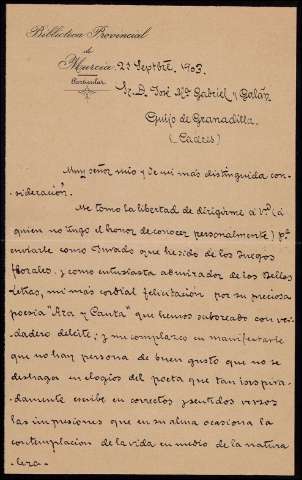 Biblioteca Provincial
de
Murcia
Particular
23 Septbre. 1903.
Sr. D. José Mª Gabriel y Galán
Guijo de Granadilla
(Cáceres)
Muy señor mio y de mi más distinguida con-
sideración.
Me tomo la libertad de dirigirme á Vd. (á
quien no tengo el honor de conocer personalmente) pª
enviarle como Jurado que he sido de los Juegos
florales, y como entusiasta admirador de las Bellas
Letras, mi más cordial felicitación por su preciosa
poesia "Ara y Canta" que hemos saboreado con ver-
dadero deleite; y me complazco en manifestarle
que no hay persona de buen gusto que no se
deshaga en elogios del poeta que tan inspira-
damente escribe en correctos y sentidos versos
las impresiones que en su alma ocasiona la
contemplación de la vida en medio de la natura-
leza.